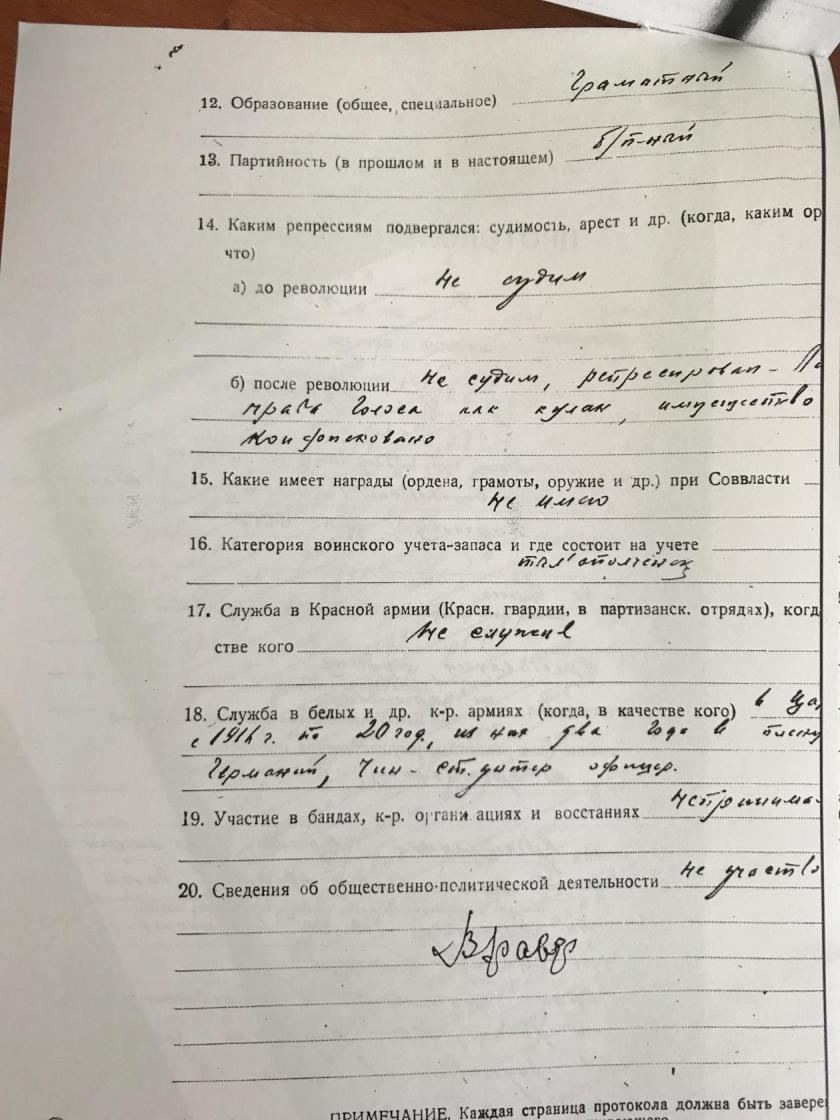 Грамотный
12. Образование (общее, специальное)
б/п-ный
13. Партийность (в прошлом и в настоящем)
14. Каким репрессиям подвергался: судимость, арест и др. (когда, каким ор
что)
а) до революции не судим
б) после революции не судим, репресирован -
права голоса как кулак, имущество
конфисковано
15. Какие имеет награды (ордена, грамоты, оружие и др.) при Соввласти
не имею
16. Категория воинского учета-запаса и где состоит на учете
17. Служба в Красной армии (Красн. гвардии, в партизанск. отрядах), когд
стве кого не служил
18. Служба в белых и др. к-р. армиях (когда, в качестве кого) в ца
с 1914 г. по 20 год, из них два года в плену
Германии, чин - ст. унтер офицер.
19. Участие в бандах, к-р. органи ациях и восстаниях непринима-
20. Сведения об общественно-политической деятельности не участво
ПРИМЕЧАНИЕ. Каждая страница протокола должна быть завере